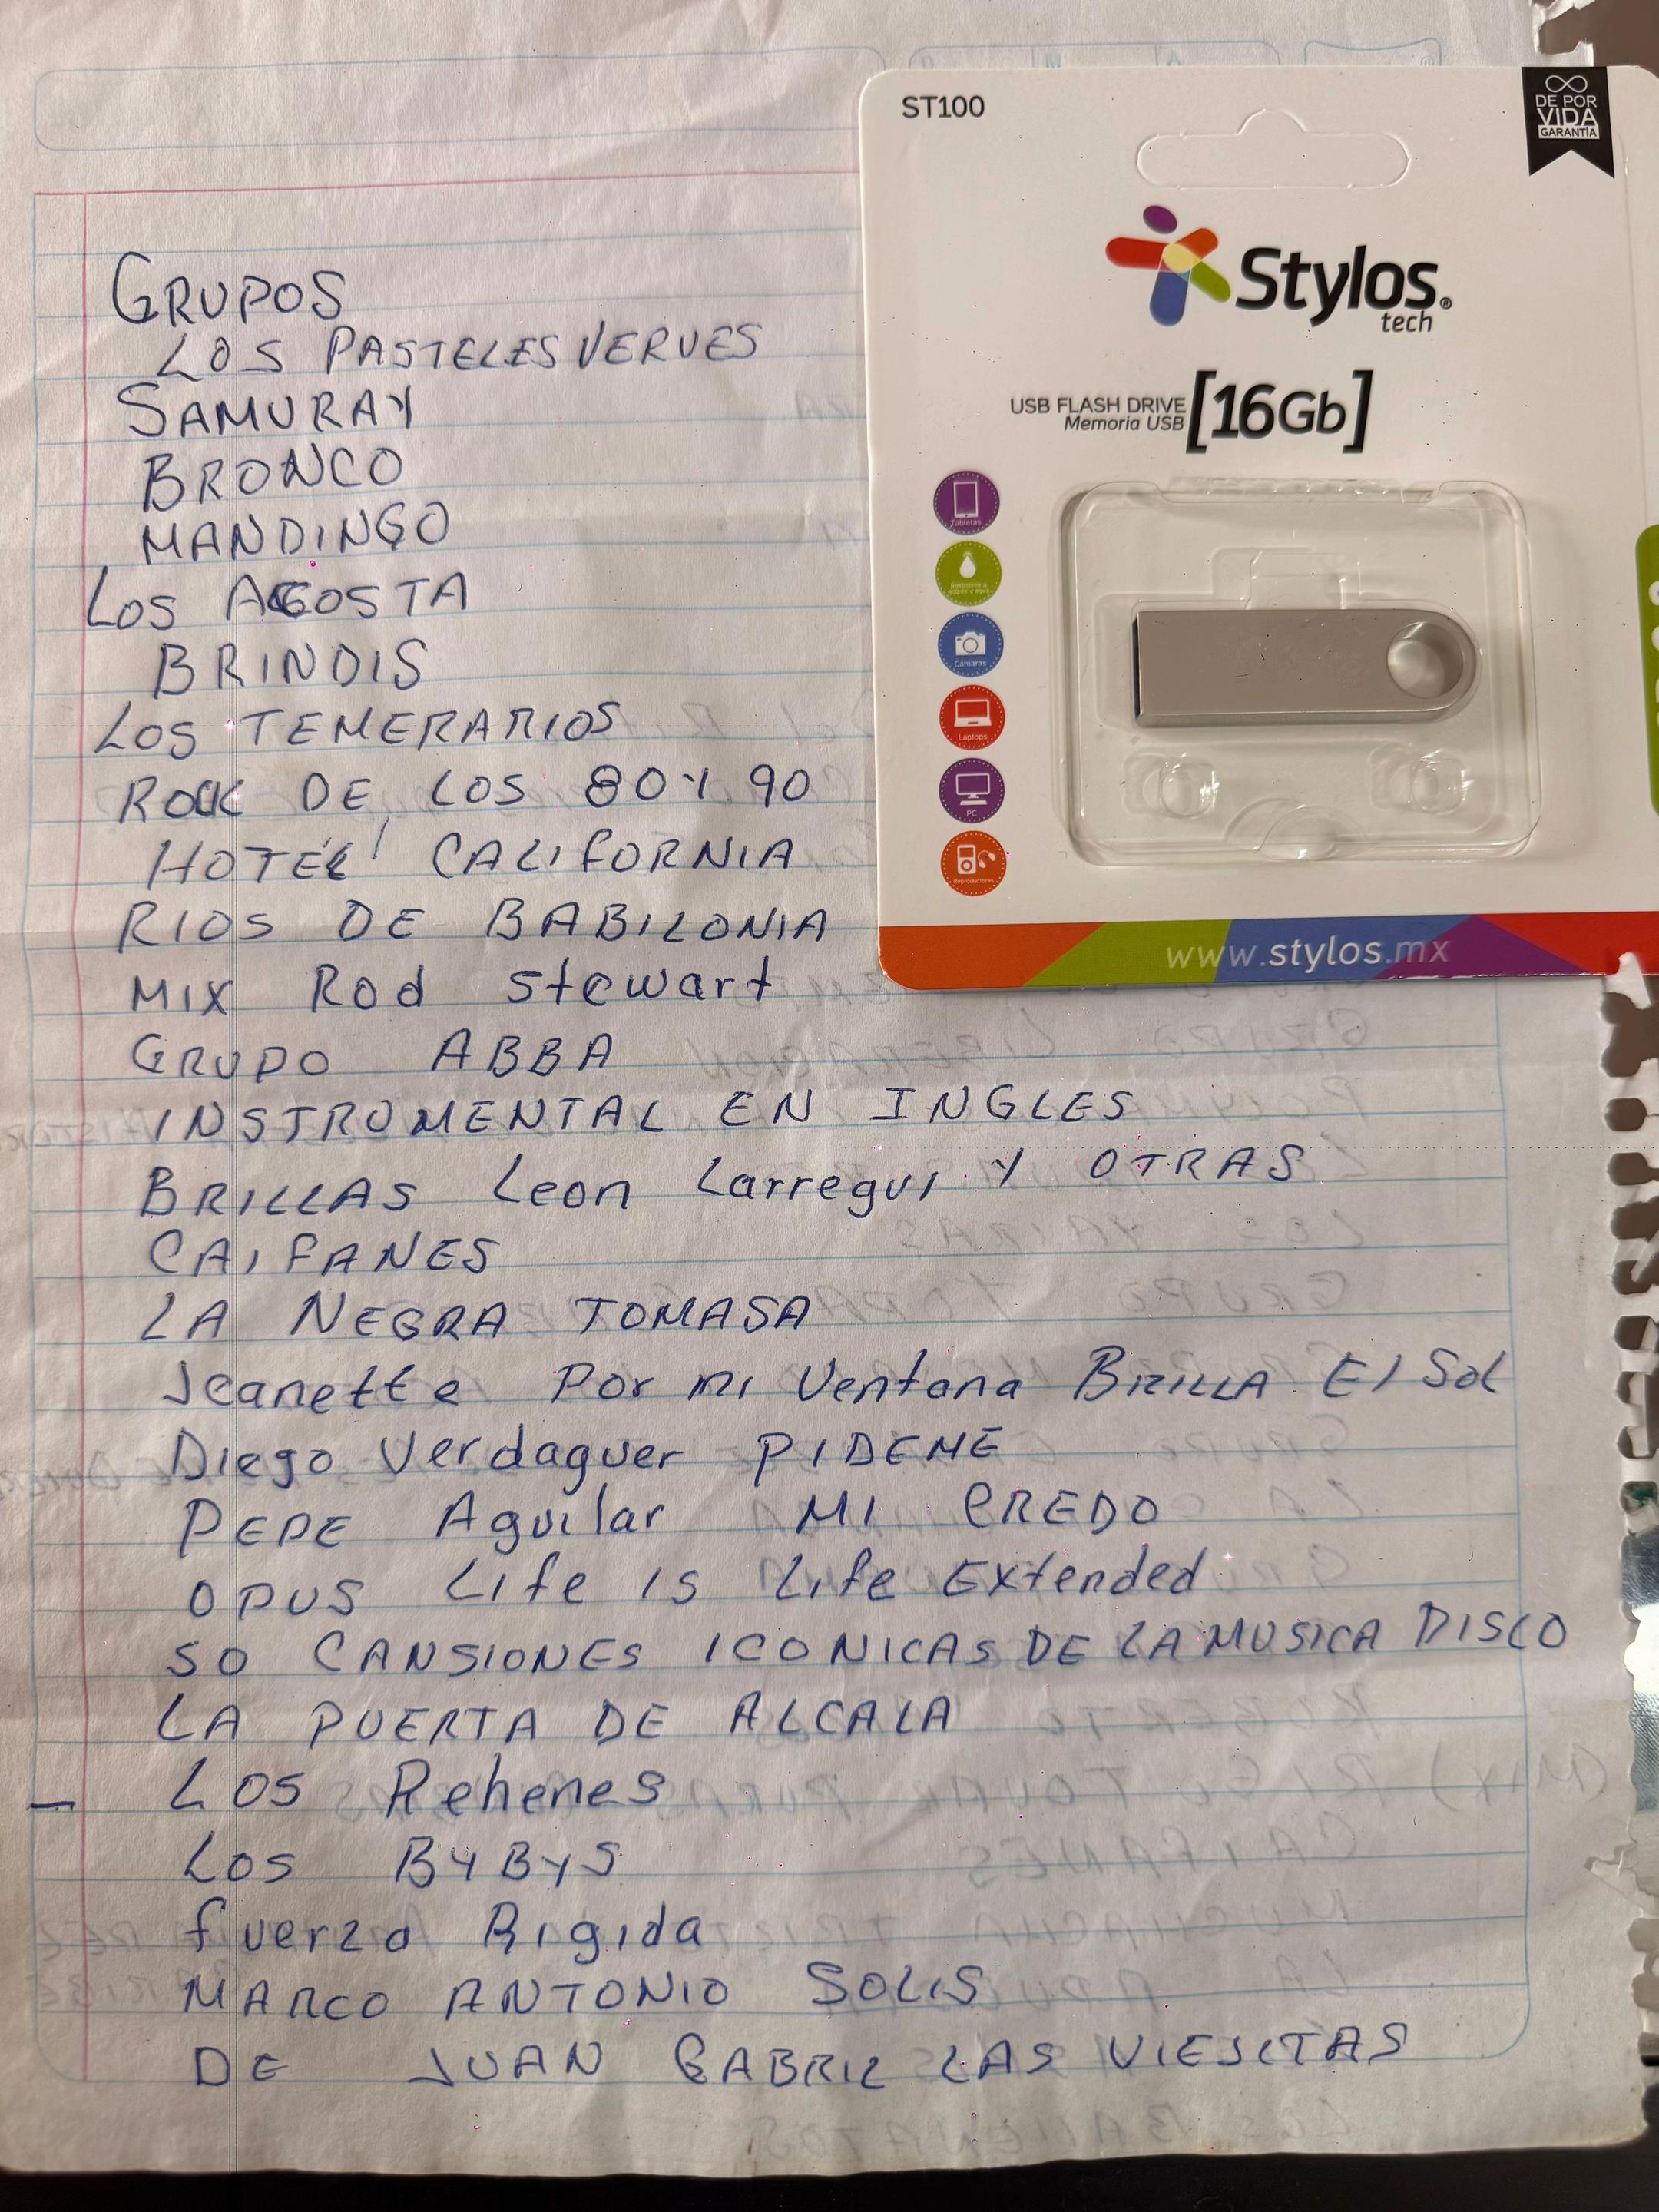 ST100
DE POR
VIDA
GARANTÍA
Stylos®
tech
USB FLASH DRIVE
Memoria USB
[16Gb]
Tabletas
Cámaras
Laptops
PC
Reproductores
www.stylos.mx
GRUPOS
LOS PASTELES VERVES
SAMURAY
BRONCO
MANDINGO
LOS ACOSTA
BRINDIS
LOS TEMERARIOS
ROCK DE LOS 80 Y 90
HOTEL CALIFORNIA
RIOS DE BABILONIA
MIX Rod Stewart
GRUPO ABBA
INSTROMENTAL EN INGLES
BRILLAS Leon Larregui Y OTRAS
CAIFANES
LA NEGRA TOMASA
Jeanette Por mi Ventana BRILLA El Sol
Diego Verdaguer PIDEME
PEPE Aguilar MI CREDO
OPUS Life is Life Extended
50 CANSIONES ICONICAS DE LA MUSICA DISCO
LA PUERTA DE ALCALA
- LOS Rehenes
LOS BYBYS
fuerza Rigida
MARCO ANTONIO SOLIS
DE JUAN GABRIL LAS VIEJITAS